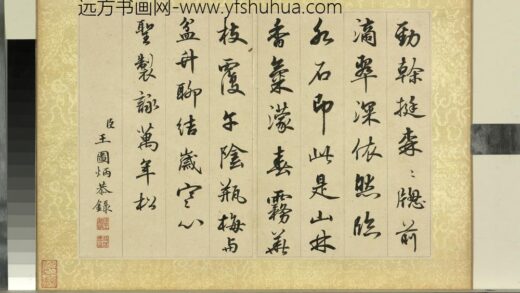 远方书画网-www.yfshuhua.com
勁幹挺森〻牕前
滴翠深依然臨
水石即此是山林
香氣濛春霧叢
枝覆午陰瓶梅與
盆卉聊結歲寒心
聖製詠萬年松
臣王圖炳恭錄